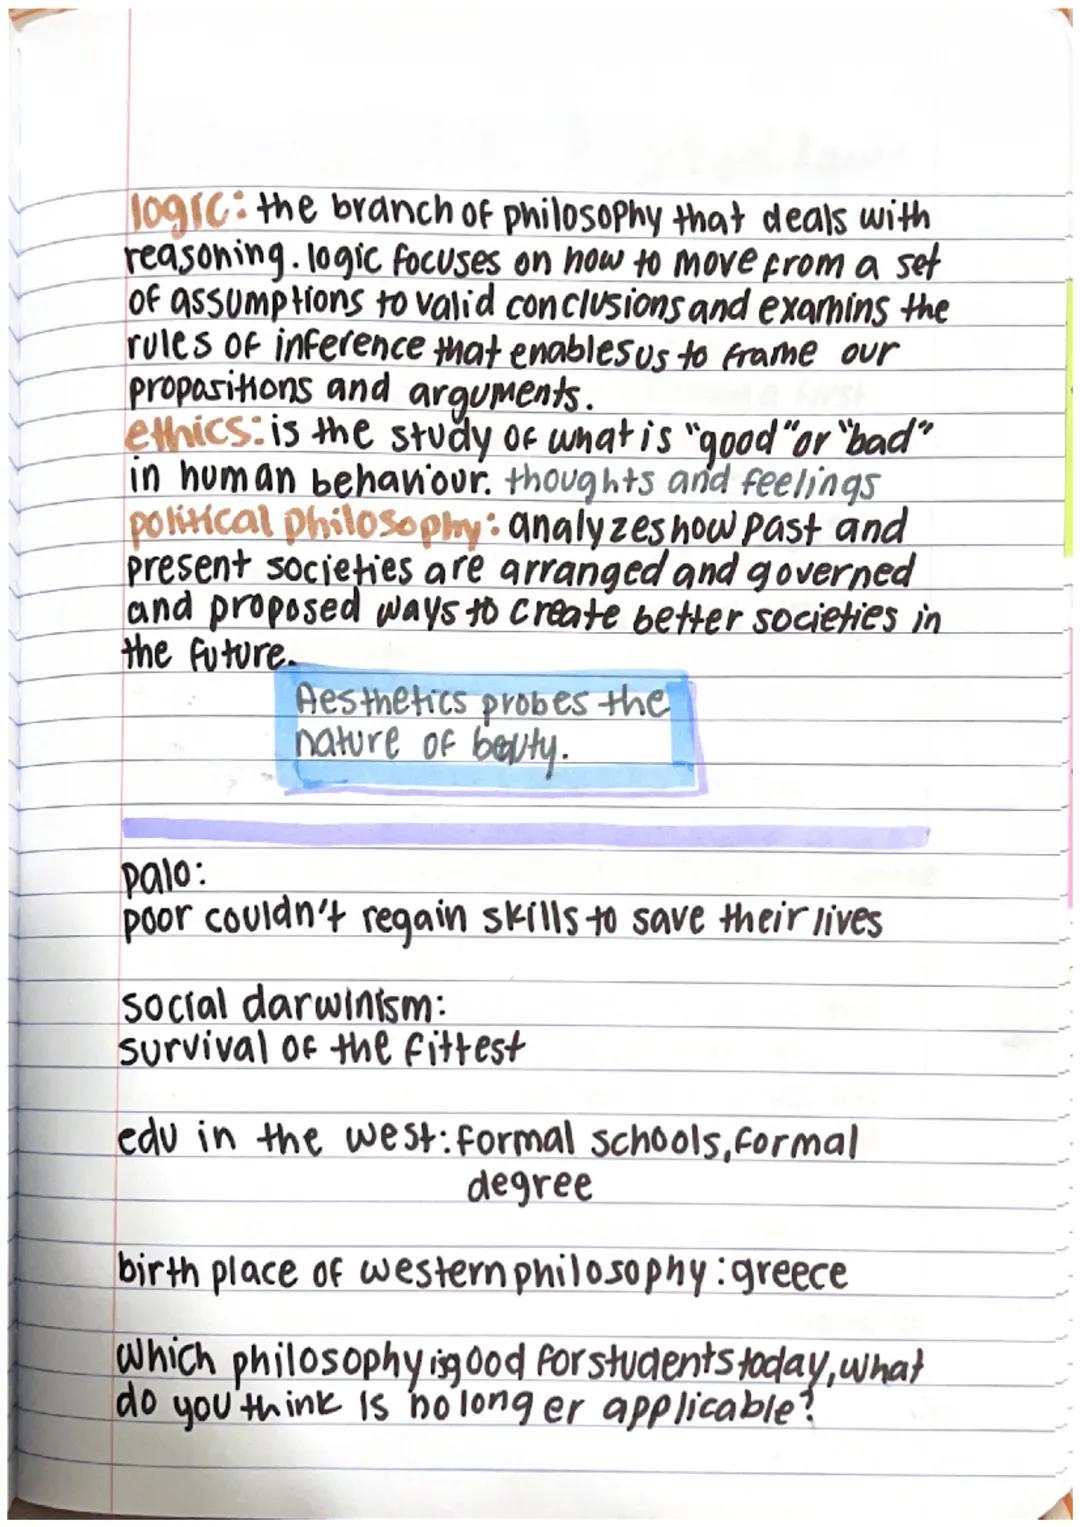 logic: the branch of philosophy that deals with
reasoning. logic focuses on how to move from a set
of assumptions to valid conclusions and examins the
rules of inference that enables us to frame our
propositions and arguments.
ethics: is the study of what is "good" or "bad"
in human behaviour. thoughts and feelings
political philosophy: analyzes how past and
present societies are arranged and governed
and proposed ways to create better societies in
the future.
Aesthetics probes the
nature of beuty.
palo:
poor couldn't regain skills to save their lives
social darwinism:
survival of the fittest
edu in the west: formal schools, formal
degree
birth place of western philosophy: greece
which philosophy is good for students today, what
do you think is no longer applicable?